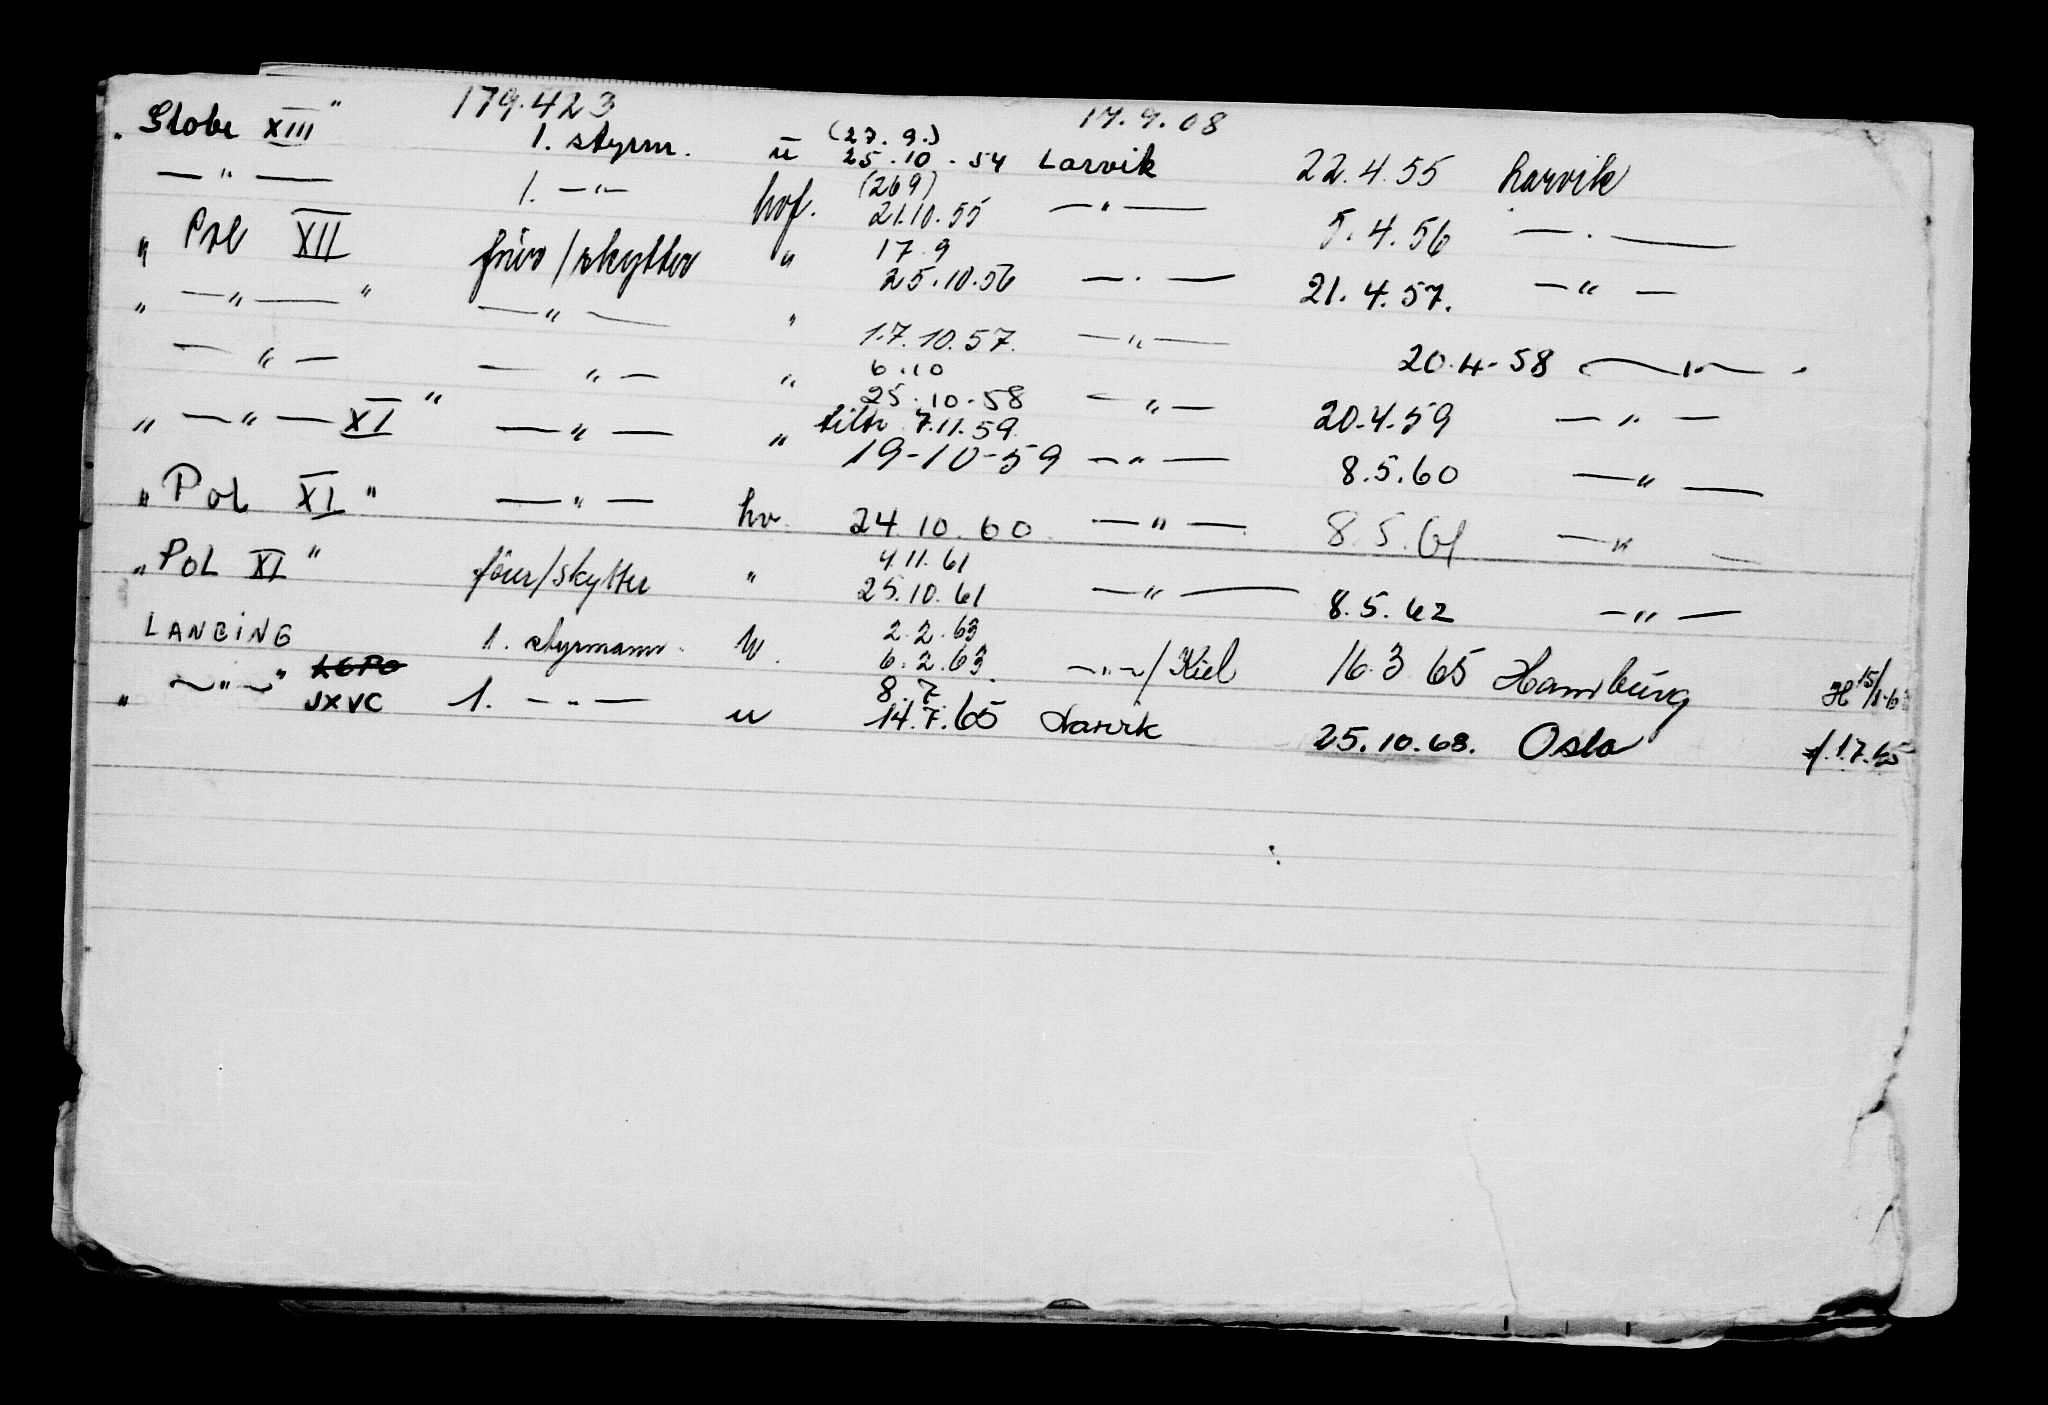 179.423 17.9.08
„ Globe XIII" 1. styrm. u (27.9.) 25.10.54 Larvik 22.4.55 Larvik
—"— 1. —"— hvf. (26.9) 21.10.55 —"— 5.4.56 —"—
„ Pol XII förer/skytter " 17.9 25.10.56 —"— 21.4.57. —"—
" —"—" —"— " 17.10.57. —"— 20.4-58 —"—
—"— —"— " 6.10 25.10.58 —"— 20.4.59 —"—
„ —"— XI" —"— " 7.11.59 19-10-59 —"— 8.5.60 —"—
„ Pol XI" —"— hv. 24.10.60 —"— 8.5.61 —"—
„ POL XI" förer/skytter " 4.11.61 25.10.61 —"— 8.5.62 —"—
LANCING 1. styrmann 2.2.63 6.2.63. —"—/Kiel 16.3 65 Hamburg
„ —"—" LGPO JXVC 1. —"— u 8.7 14.7.65 Larvik 25.10.68. Oslo 1.7.65